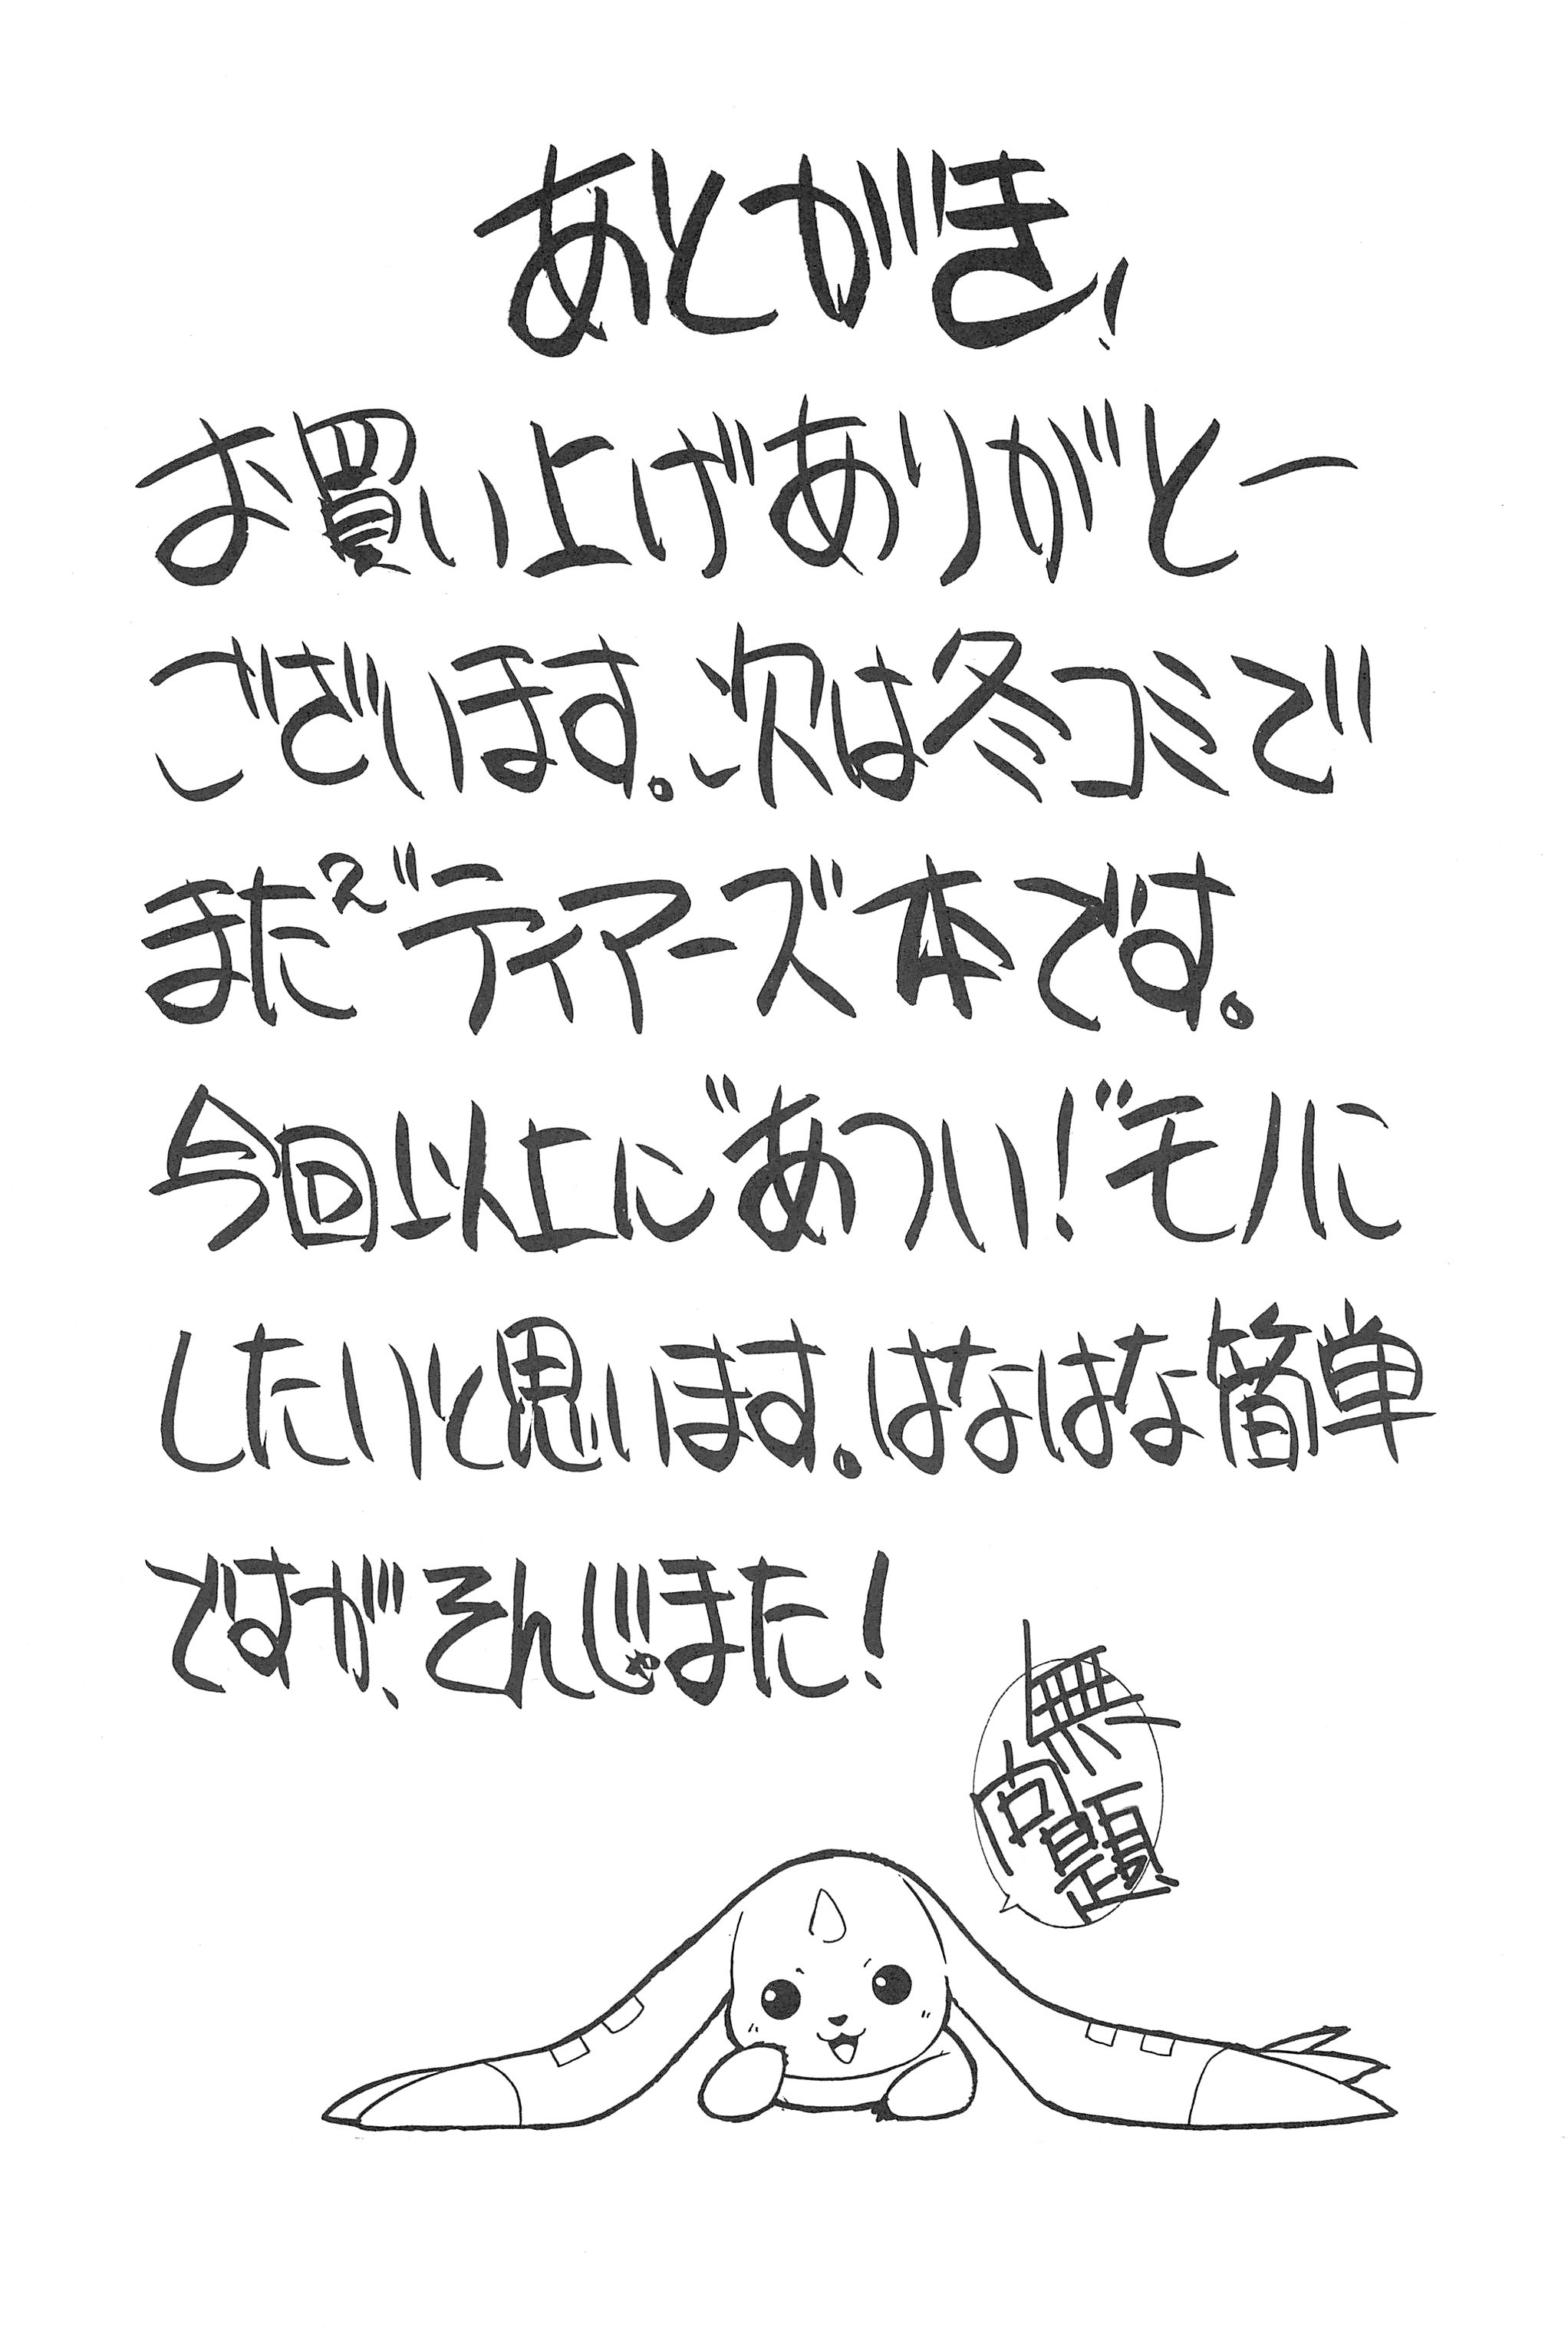 あとがき!
お買い上げありがとー
ございます。次は冬コミで
まだティアーズ本です。
今回以上に"あつい!"モノに
したいと思います。はなはな簡単
ですが、そんじゃまた!
無
問題